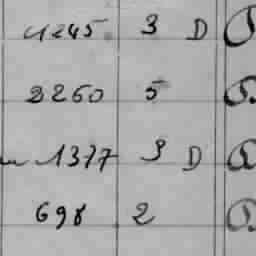 4245 3 D
2260 5
1377 3 D
698 2